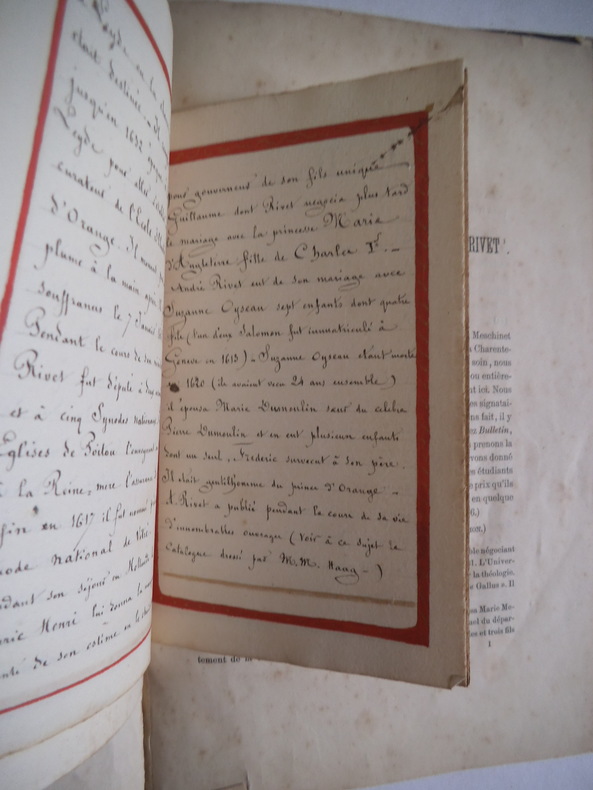 Leyde ou la
était destinée. Il
jusqu'en 1632 époque
Leyde pour aller
curateur de l'école
d'Orange. Il mourut
plume à la main, après
souffrances le 7 Janvier
Pendant le cours de son
Rivet fut député à
et à cinq Synodes nationaux
Eglises de Poitou l'envoyèrent
à la Reine, mère l'assurance
fin en 1617 il fut nommé
node national de Vitré
ndant son séjour en Hollande
eric Henri lui donna la
de son estime en le
pour gouverneur de son fils unique
Guillaume dont Rivet négocia plus tard
le mariage avec la princesse Marie
d'Angleterre fille de Charles Ier. –
André Rivet eut de son mariage avec
Suzanne Oyseau sept enfants dont quatre
fils (l'un d'eux Salomon fut immatriculé à
Genève en 1613) – Suzanne Oyseau étant morte
1620 (ils avaient vécu 24 ans ensemble)
il épousa Marie Dumoulin sœur du célèbre
Pierre Dumoulin et en eut plusieurs enfants
dont un seul, Frederic survécut à son père.
Il était gentilhomme du prince d'Orange –
A. Rivet a publié pendant la cours de sa vie
d'innombrables ouvrages (Voir à ce sujet le
Catalogue dressé par M.M. Haag –)
RIVET 1.
Meschinet
a Charente-
soin, nous
ou entière-
nt ici. Nous
es signatai-
ns fait, il y
eu Bulletin,
prenons la
vons donné
es étudiants
e prix qu'ils
en quelque
6.)
ble négociant
t. L'Univer-
la théologie.
e Gallus ». Il
sa Marie Me-
uel du dépar-
es et trois fils
1
tement de la